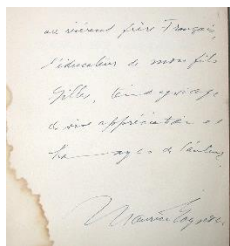 au révérend frère François
l'éducateur de mon fils
Gilles, témoignage
de vive appréciation et
hommages de l'auteur
Maurice